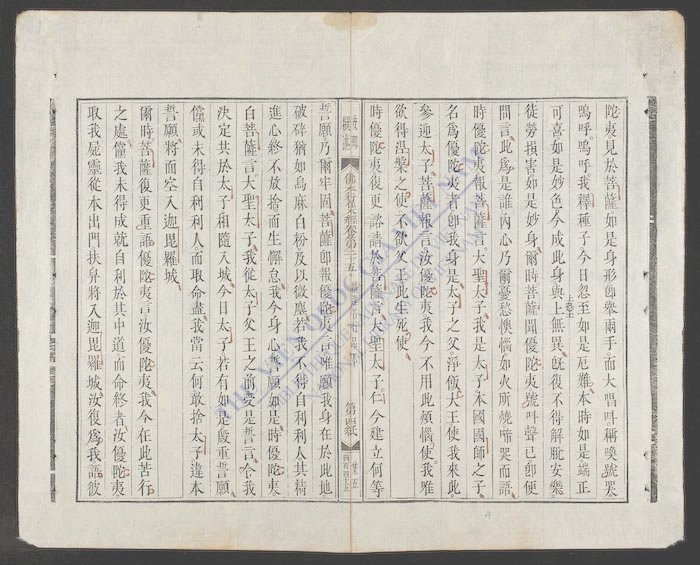 陀夷見於菩薩如是身形卽舉兩手而大唱叫稱喚號哭
嗚呼嗚呼我釋種子今日忽至如是厄難本時如是端正
可喜如是妙色今成此身與上無異旣復不得解脫安樂
徒勞損害如是妙身爾時菩薩聞優陀夷號叫聲已卽便
問言此爲是誰內心乃爾憂愁懊惱如火所燒啼哭而語
時優陀夷報菩薩言大聖太子我是太子本國國師之子
名爲優陀夷者卽我身是太子之父淨飯大王使我來此
參迎太子菩薩報言汝優陀夷我今不用此煩惱使我唯
欲得涅槃之使不欲父王此生死使
時優陀夷復更諮請於菩薩言大聖太子仁今建立何等
佛本行集經卷第二十五
第四紙
誓願乃爾牢固菩薩卽報優陀夷言唯願我身在於此地
破碎猶如烏麻白粉及以微塵若我不得自利利人其精
進心終不放捨而生懈怠我今身心誓願如是時優陀夷
白菩薩言大聖太子我從太子父王之前受是誓言令我
決定共於太子相隨入城今日太子若有如是殷重誓願
儻或未得自利利人而取命盡我當云何敢捨太子違本
誓願將而空入迦毘羅城
爾時菩薩復更重語優陀夷言汝優陀夷我今在此苦行
之處儻我未得成就自利於其中道而命終者汝優陀夷
取我屍靈從本出門扶舁將入迦毘羅城汝復爲我語彼